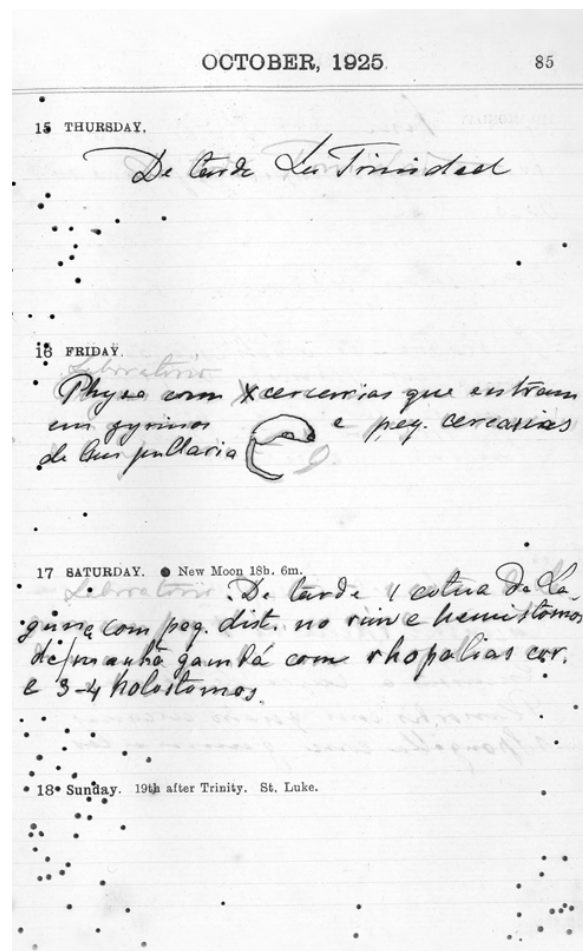 OCTOBER, 1925. 85
15 THURSDAY.
De tarde La Trinidad
16 FRIDAY.
Laboratorio
Physa com X cercarias que entram
em gyrinos e peq. cercarias
de Am pullaria
17 SATURDAY. ● New Moon 18h. 6m.
Laboratorio. De tarde 1 cotua da La-
guna com peq. dist. no rim e hemistomos
de manhã gambá com rhopalias cor.
e 3-4 holostomos.
18 Sunday. 19th after Trinity. St. Luke.